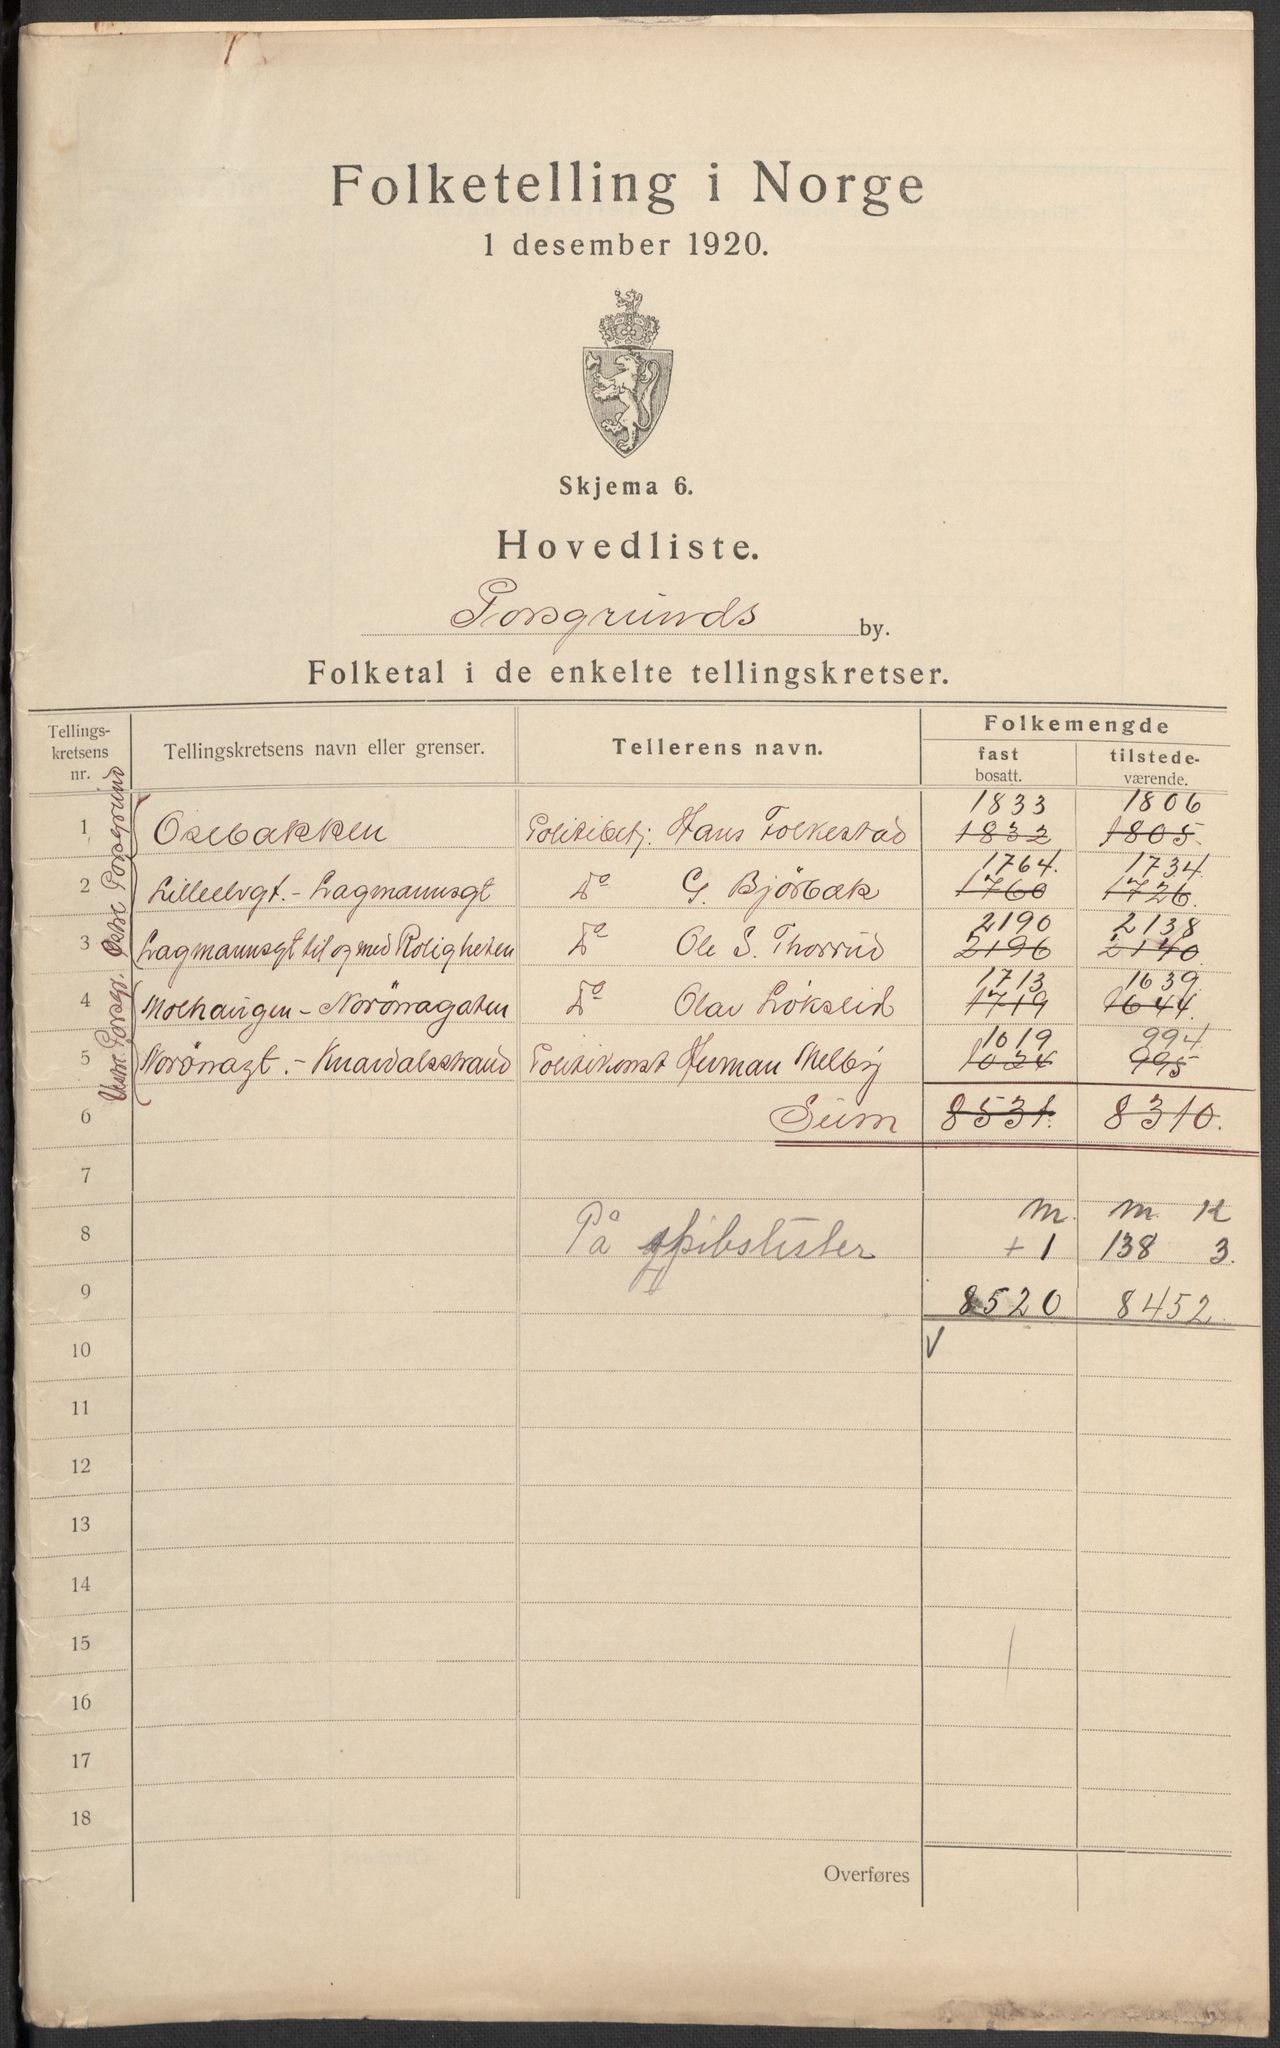 Folketelling i Norge
1 desember 1920.
Skjema 6.
Hovedliste.
Porsgrunds by.
Folketal i de enkelte tellingskretser.
Tellings-kretsens nr. Tellingskretsens navn eller grenser. Tellerens navn. Folkemengde
fast bosatt. tilstede-værende.
Østre Porsgrund
Vestre Porsgr.
1833 1806
1 Osebakken Politibetj. Hans Folkestad 1832 1805.
1764. 1734.
2 Lilleelvgt. - Lagmannsgt Do G. Bjørbæk 1760 1726.
2190 2138
3 Lagmannsgt til og med Roligheten Do Ole S. Thorrud 2196 2140.
1713 1639.
4 Molhaugen - Norönagaten Do Olav Lökslid 1719 1644.
1019 994.
5 Norönagt. - Knardalsstrand Politikonst Herman Melby 1024 995
6 Sum 8531. 8310.
7
m. m. K
8 På skibslister + 1 138 3.
9 8520 8452
10 V
11
12
13
14
15
16
17
18
Overføres